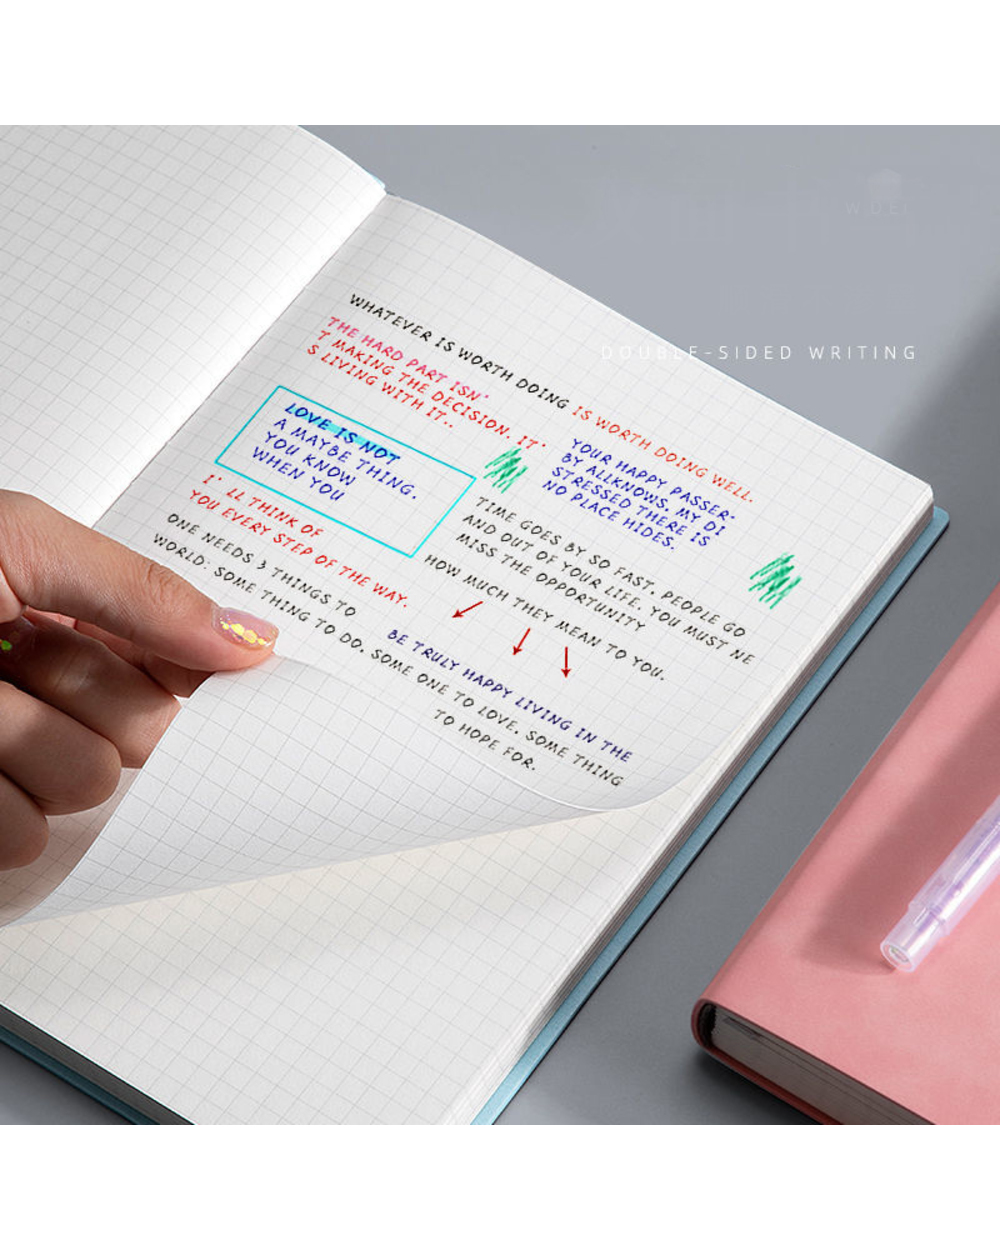 WHATEVER IS WORTH DOING IS WORTH DOING WELL.
THE HARD PART ISN'
T MAKING THE DECISION. IT'
S LIVING WITH IT..
LOVE IS NOT
A MAYBE THING.
YOU KNOW
WHEN YOU
I' LL THINK OF
YOU EVERY STEP OF THE WAY.
ONE NEEDS 3 THINGS TO
BE TRULY HAPPY LIVING IN THE
WORLD: SOME THING TO DO. SOME ONE TO LOVE. SOME THING
TO HOPE FOR.
YOUR HAPPY PASSER-
BY ALLKNOWS. MY DI
STRESSED THERE IS
NO PLACE HIDES.
TIME GOES BY SO FAST. PEOPLE GO
AND OUT OF YOUR LIFE. YOU MUST NE
MISS THE OPPORTUNITY
HOW MUCH THEY MEAN TO YOU.
DOUBLE-SIDED WRITING